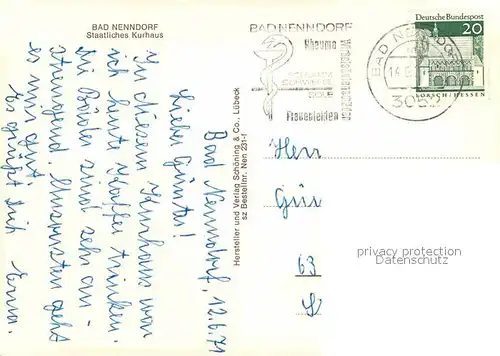 BAD NENNDORF
Staatliches Kurhaus
Bad Nenndorf, 12.6.71
Lieber Günter!
In diesem Kurhaus war
ich heute Kaffee trinken.
Die Bäder sind sehr an-
strengend. Ansonsten geht
es mir gut.
Es grüßt Dich Erna.
Hersteller und Verlag Schöning & Co., Lübeck
sz Bestellnr. Nen 231-f
BAD NENNDORF
Rheuma
SCHLAMM
SCHWEFEL
SOLE
Frauenleiden
BAD NENNDORF
3052
Deutsche Bundespost
20
LORSCH/HESSEN
Herr
Gün
63
privacy protection
Datenschutz